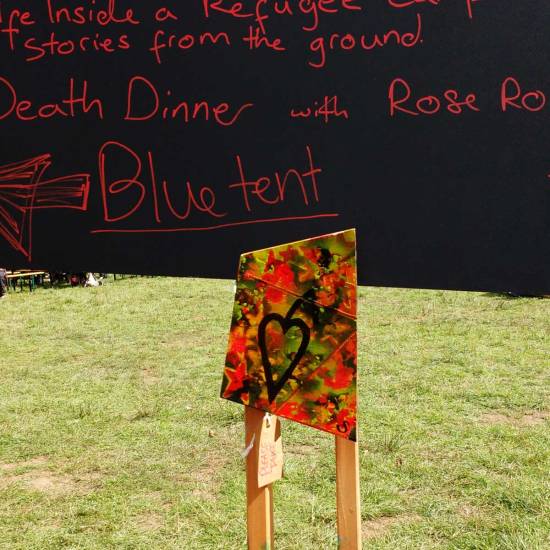 Life Inside a Refugee Camp
Stories from the ground.
Death Dinner with Rose Ro
Blue tent
S